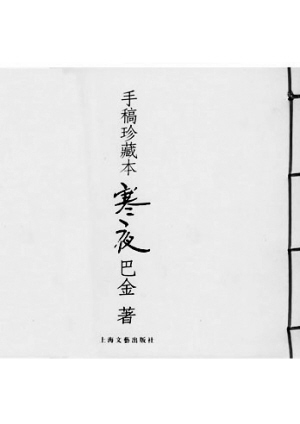 手稿珍藏本
寒夜
巴金 著
上海文藝出版社